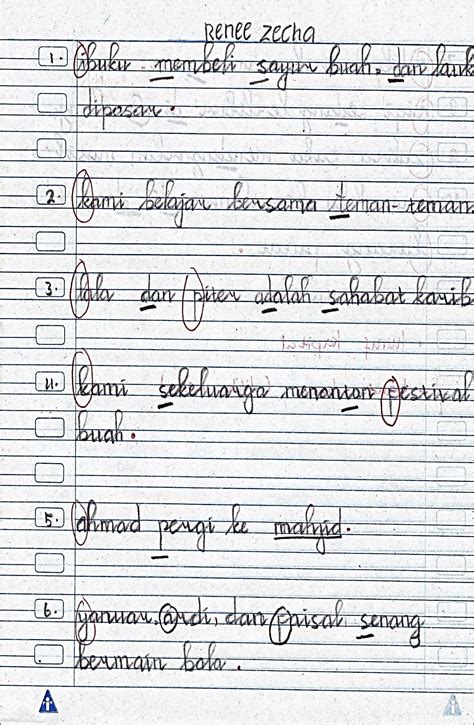 Renee zecha
1. ibuku membeli sayur buah, dan lauk
dipasar.
2. kami belajar bersama teman-teman
3. lala dan piter adalah sahabat karib
4. kami sekeluarga menonton festival
buah.
5. ahmad pergi ke
6. yanuar, ardi, dan faisal senang
bermain bola.